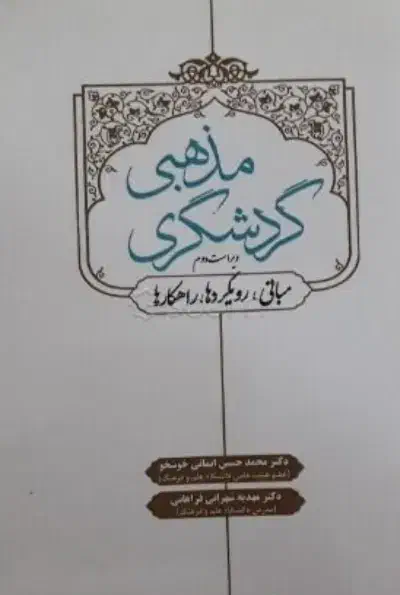 گردشگری
مذهبی
ویراست دوم
مبانی، رویکردها، راهکارها
دکتر محمد حسین ایمانی خوشخو
(عضو هیئت علمی دانشگاه علم و فرهنگ)
دکتر مهدیه شهرابی فراهانی
(مدرس دانشگاه علم و فرهنگ)